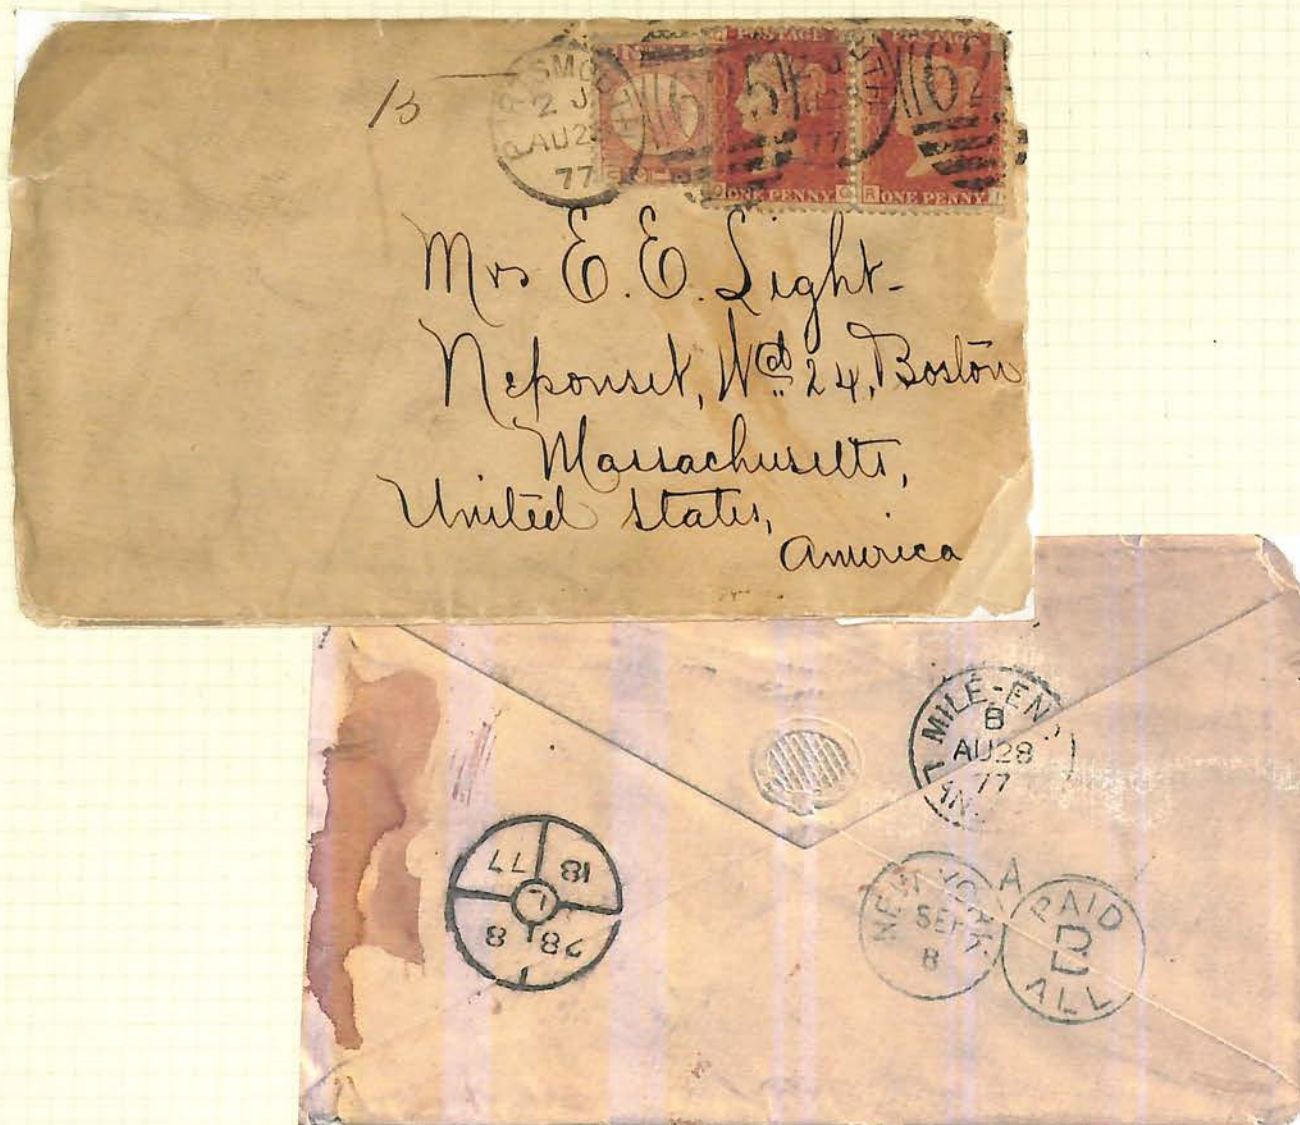 15
PORTSMOUTH
2 J
AU28
77
625
62
POSTAGE
ONE PENNY
R ONE PENNY
Mrs E. E. Light-
Neponset, Wd 24, Boston
Massachusetts,
United States,
America
MILE-EN
B
AU28
77
77 18
L
8 28
NEW YORK
SEP
8
A
PAID
B
ALL